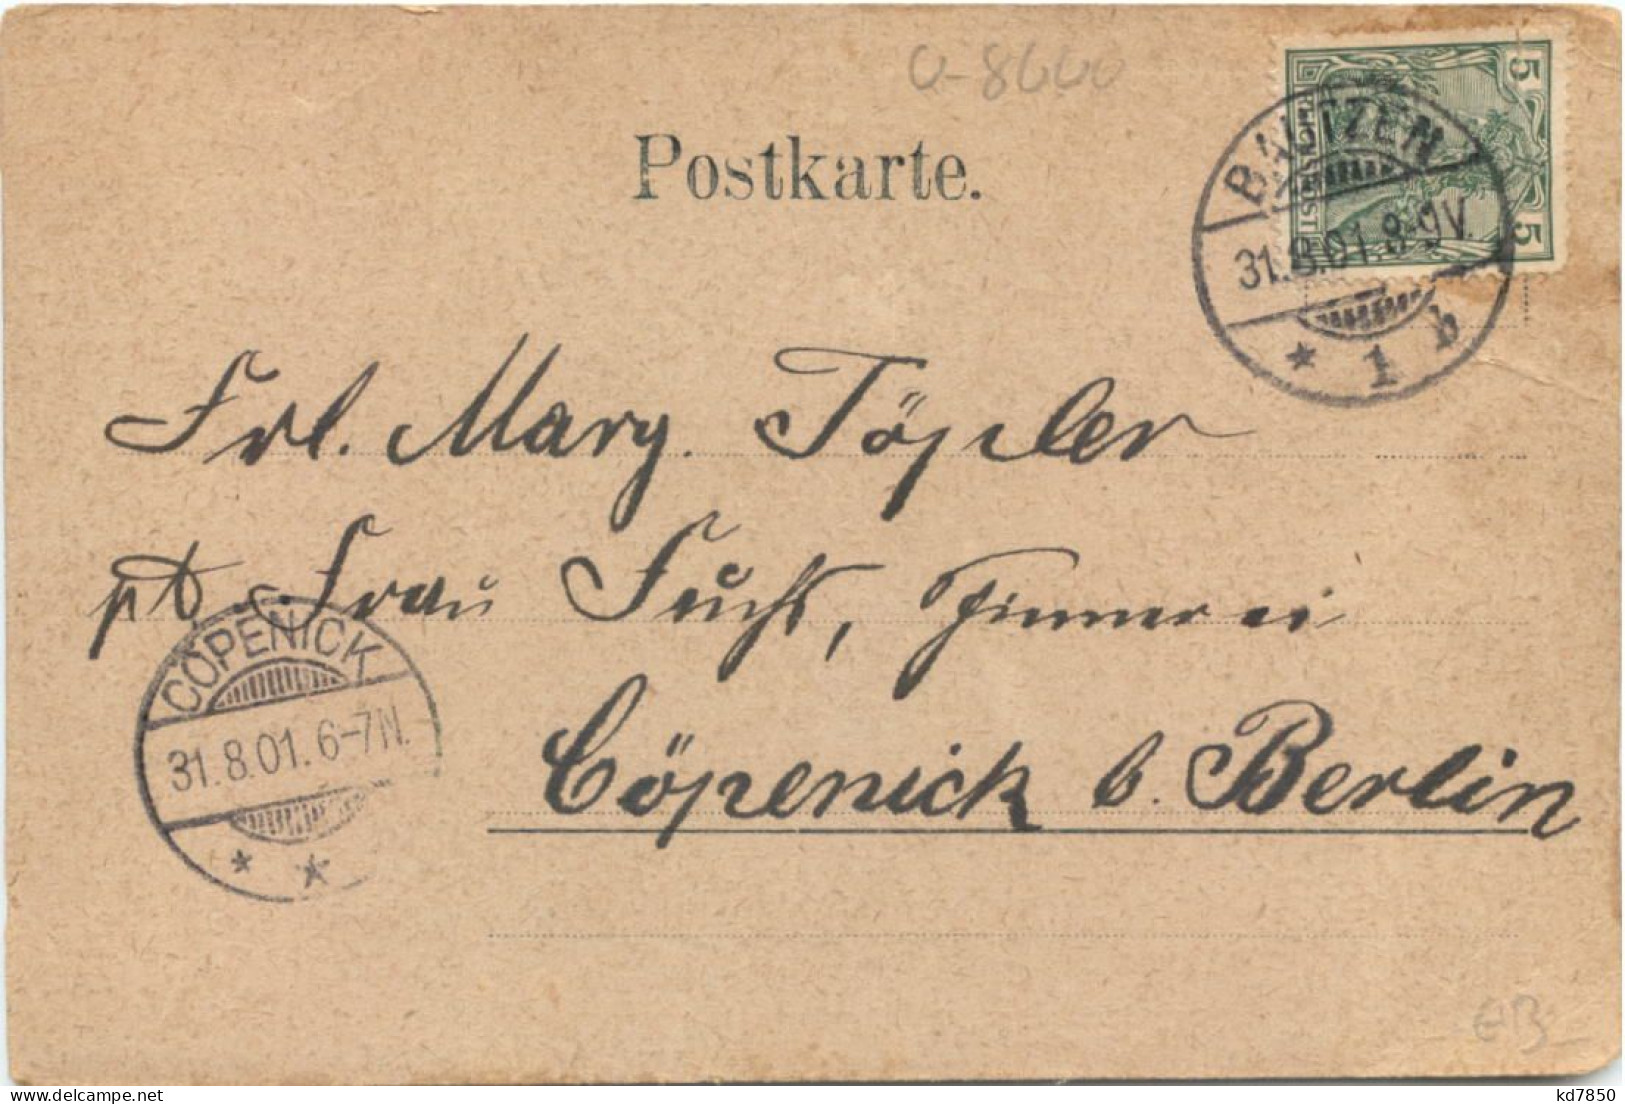 0-8600
Postkarte.
5 5
REICHSPOST
BAUTZEN
31.8.01.8-9V.
* 1 b
Frl. Marg. Töpler
Frau Fuchs,
CÖPENICK
31.8.01.6-7N.
* *
Cöpenick b. Berlin
EB
kd7850